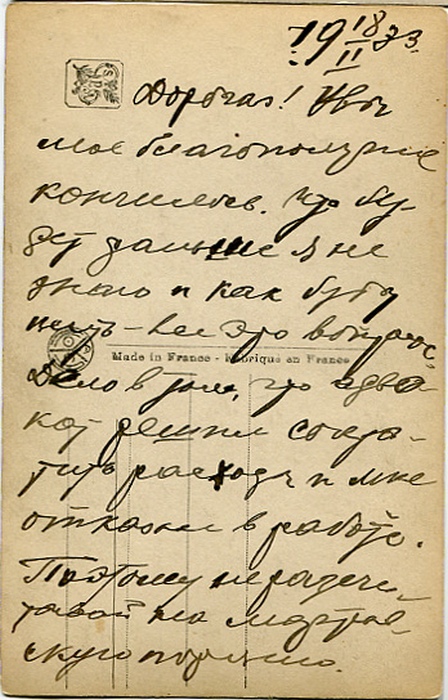 19 18/II 33.
Дорогая! Увы
мое благополучие
кончилось. Что бу-
дет дальше я не
знаю и как буду
жить – все это вопрос.
Made in France - Fabrique en France
Дело в том, что адво-
кат решил сокра-
тить расходы и мне
отказал в работе.
Поэтому не рассчи-
тывай на мартов-
скую порцию.